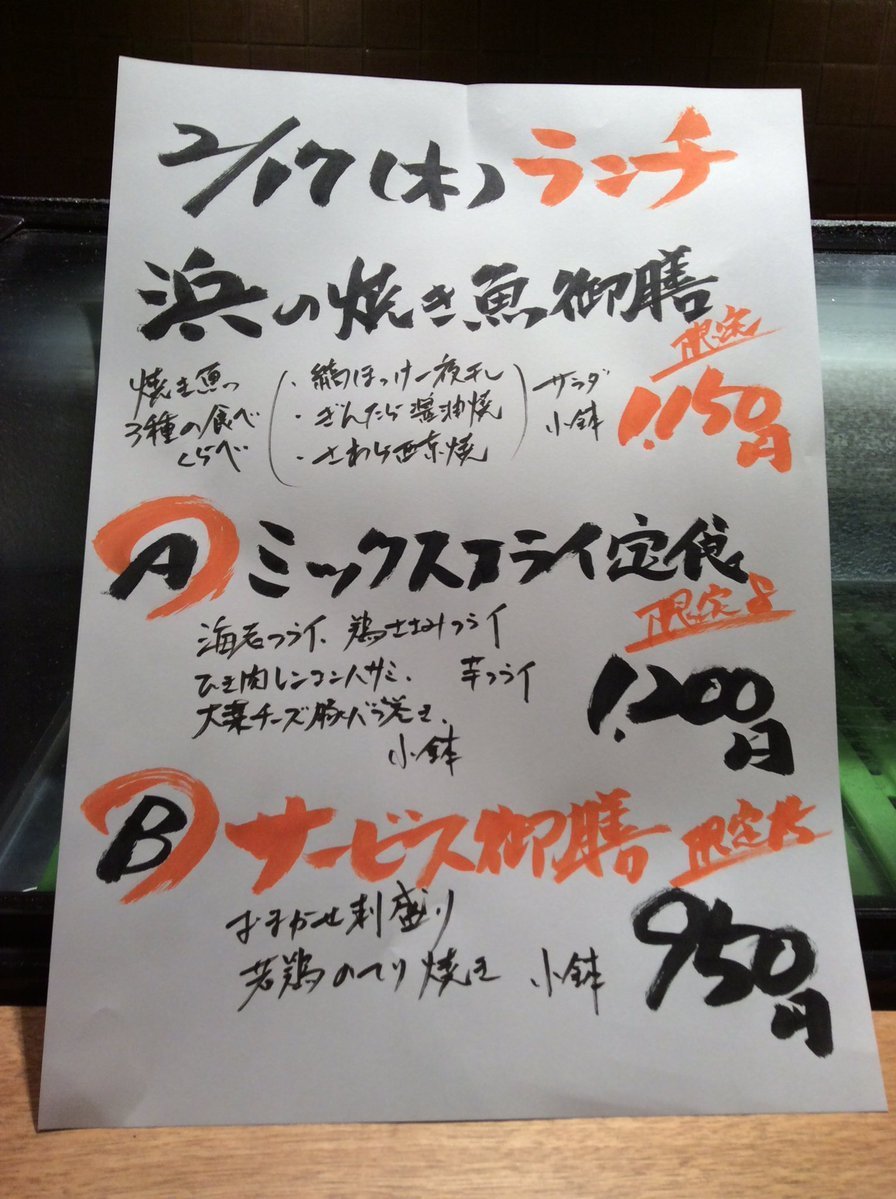 2/17(木)ランチ
浜の焼き魚御膳
限定
1,150円
焼き魚
3種の食べ
くらべ
・縞ほっけ一夜干し
・ぎんだら醤油焼
・さわら西京焼
サラダ
小鉢
A ミックスフライ定食
限定8
1,200円
海老フライ、鶏ささみフライ
ひき肉レンコンハサミ、 芋フライ
大葉チーズ豚バラ巻き、
小鉢
B サービス御膳
限定15
950円
おまかせ刺盛り
若鶏のてり焼き 小鉢